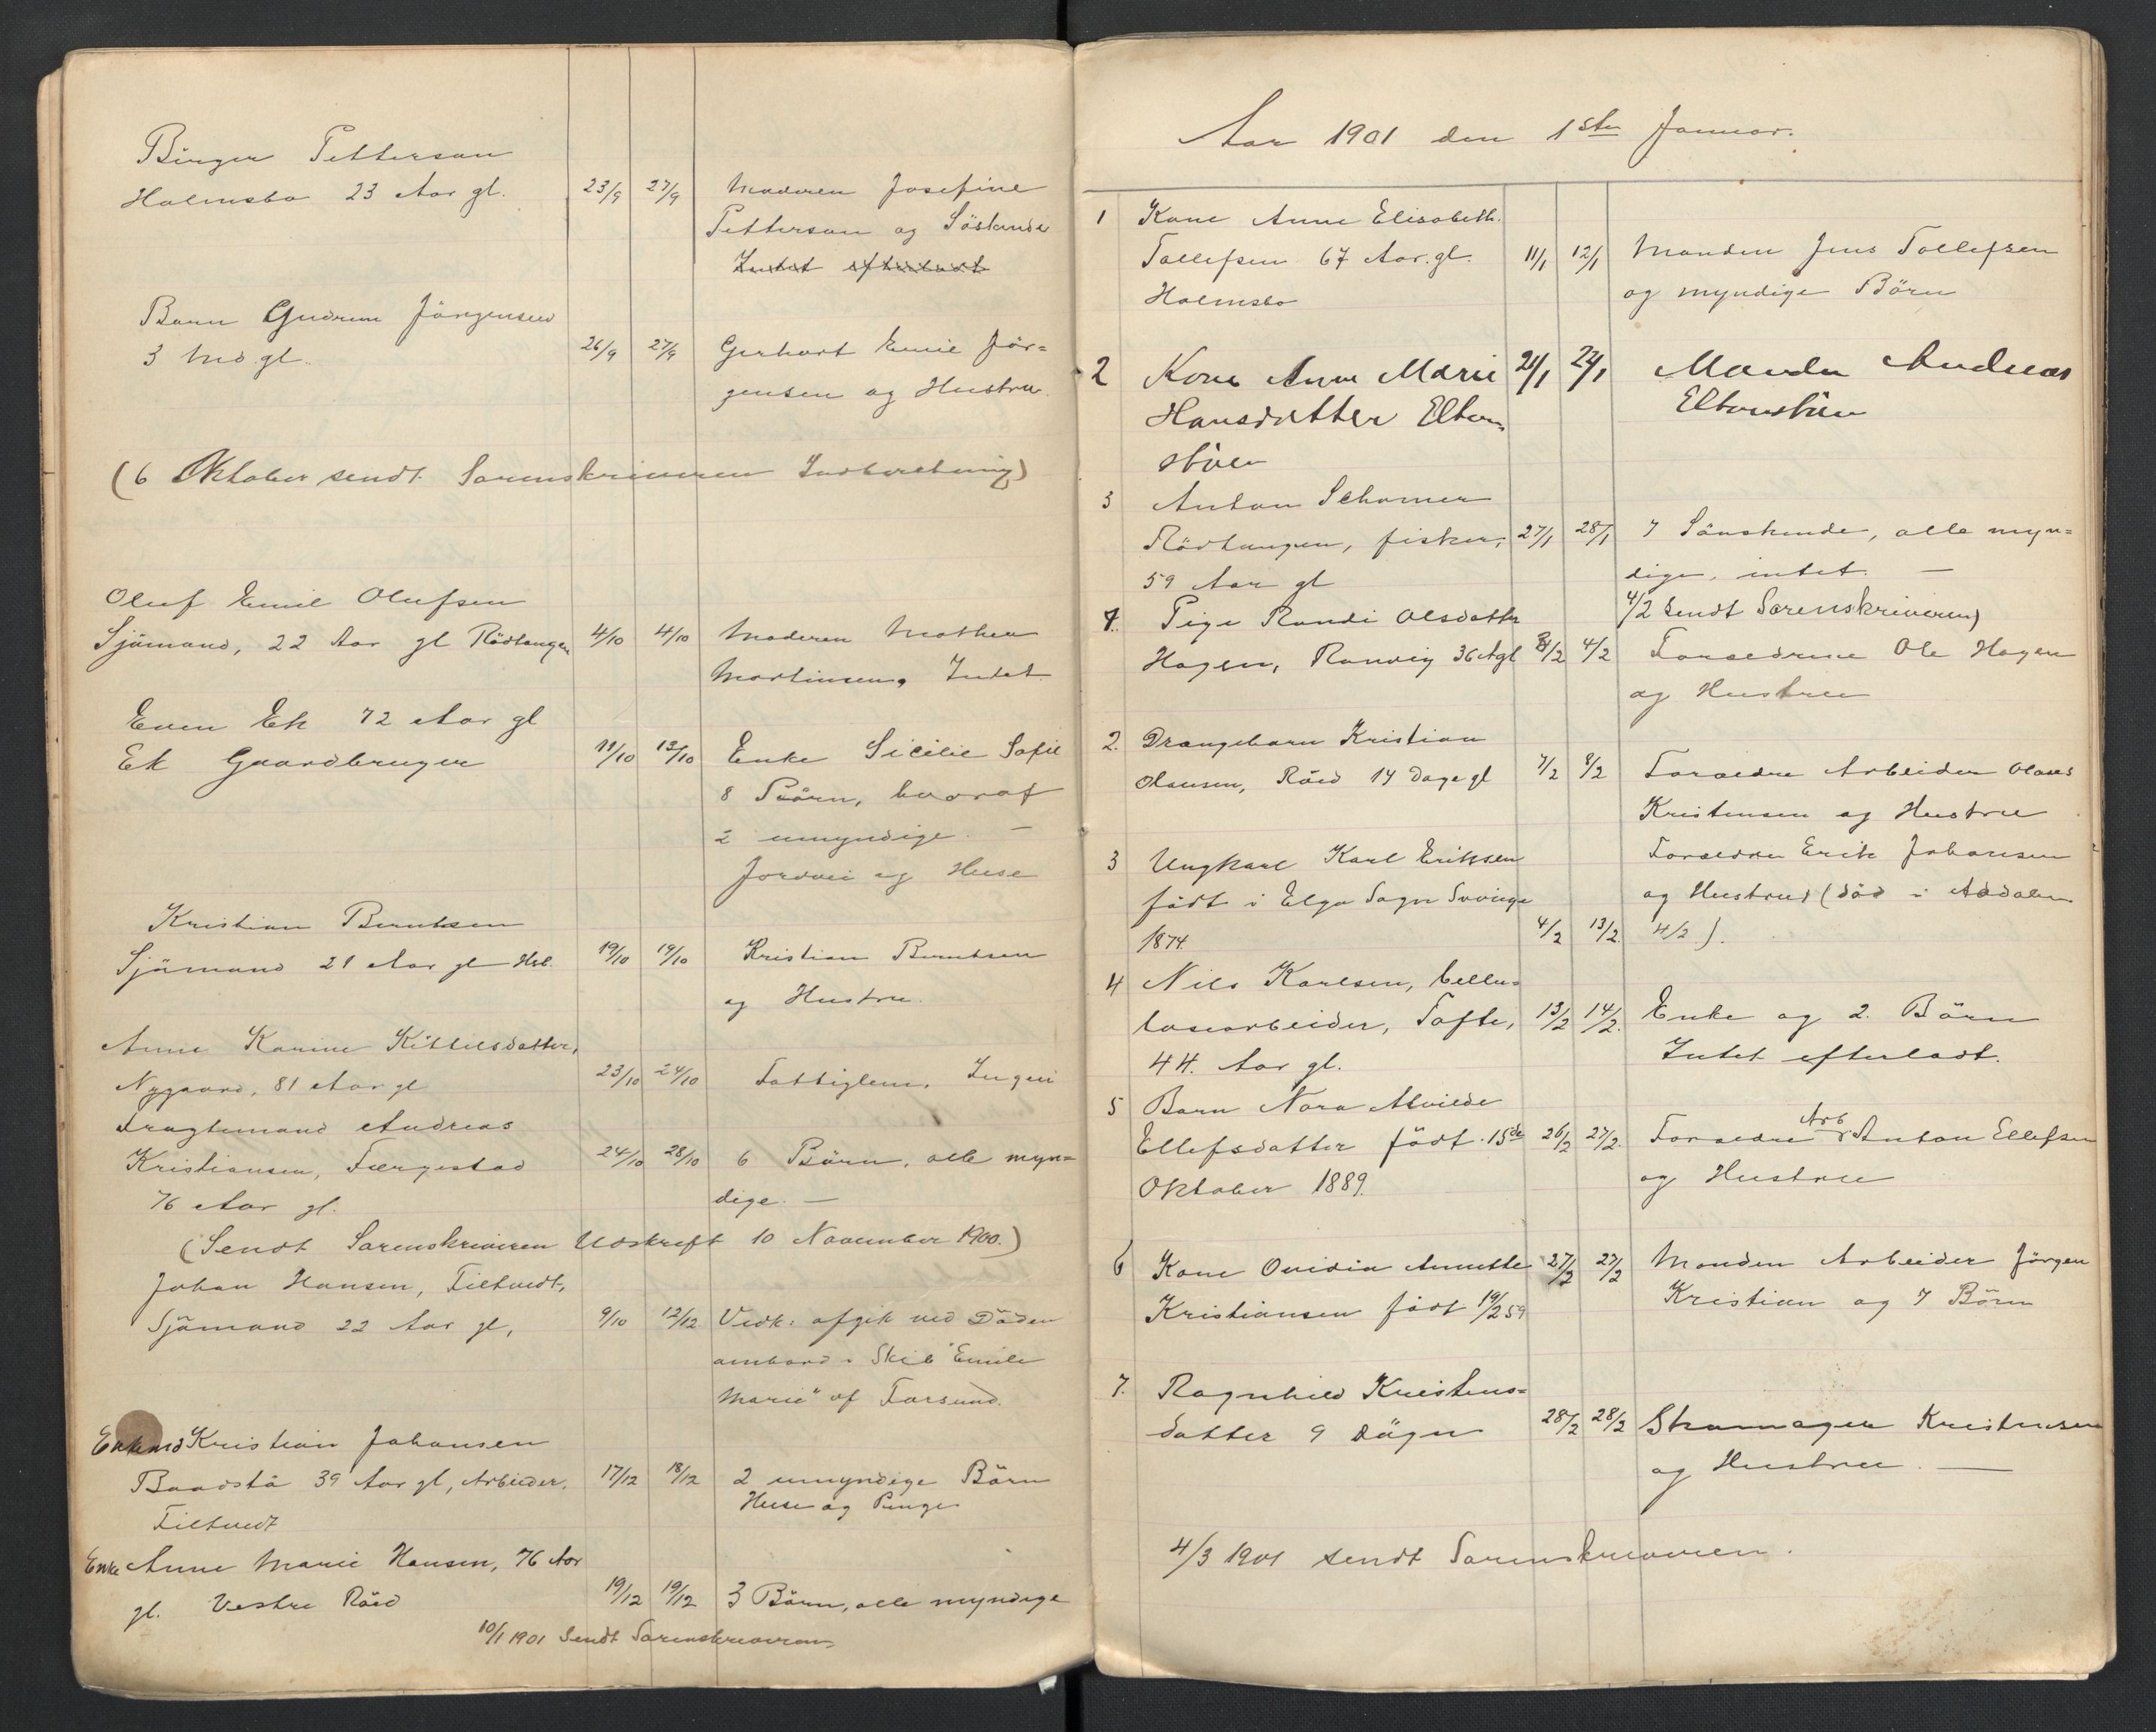 Birger Petterson
Holmsbo 23 Aar gl. 23/9 27/9 Moderen Josefine
Petterson og Söskende
Intet efterladt
Barn Gudrun Jörgensen
3 Md. gl. 26/9 27/9 Gerhart Emil Jör=
gensen og Hustru
(6 Oktober sendt Sorenskriveren Indberetning)
Oluf Emil Olufsen
Sjömand, 22 Aar gl Rödtangen 4/10 4/10 Moderen Mathea
Martinsen, Intet
Even Ek 72 Aar gl
Ek Gaardbruger 11/10 13/10 Enke Sicilie Sofie
8 Börn, hvoraf
2 umyndige. —
Jordvei og Huse
Kristian Berntsen
Sjömand 21 Aar gl Hol. 19/10 19/10 Kristian Berntsen
og Hustru.
Anne Karine Kittilsdatter,
Nygaard, 81 Aar gl 23/10 24/10 Fattiglem. Ingen
Fragtemand Andreas
Kristiansen, Færgestad 24/10 28/10 6 Börn, alle myn=
76 Aar gl. dige. —
(Sendt Sorenskriveren Udskrift 10 November 1900.)
Johan Hansen, Filtvedt,
Sjömand 22 Aar gl, 9/10 12/12 Vedk: afgik ved Döden
ombord i Skib "Emilie
Marie" af Farsund.
Enkemd Kristian Johansen
Baadstö 39 Aar gl, Arbeider. 17/12 18/12 2 umyndige Börn
Filtvedt Huse og Penge
Enke Anne Marie Hansen, 76 Aar
gl. Vestre Röed 19/12 19/12 3 Börn, alle myndige
10/1 1901 Sendt Sorenskriveren
Aar 1901 den 1ste Januar.
1 Kone Anne Elisabeth.
Tollefsen 67 Aar. gl. 11/1 12/1 Manden Jens Tollefsen
Holmsbo og myndige Börn
2 Kone Anne Marie 21/1 22/1 Manden Andreas
Hansdatter Elton Eltonstöen
stöen
3 Anton Schamer
Rödtangen, fisker, 27/1 28/1 7 Sönskende, alle myn=
59 Aar gl dige, intet. —
4/2 Sendt Sorenskriveren)
1. Pige Randi Olsdatter
Hagen, Ranvig 36 A gl 3/2 4/2 Forældrene Ole Hagen
og Hustru
2. Drængebarn Kristian
Olausen, Röed 14 Dage gl 7/2 8/2 Forældre Arbeider Olaus
Kristensen og Hustru
3 Ungkarl Karl Eriksen Forældre Erik Johansen
födt i Elga Sogn Sverige og Hustru (död i Aadalen
1874. 4/2 13/2. 4/2).
4 Nils Karlsen, Cellu=
losearbeider, Tofte, 13/2 14/2. Enke og 2. Börn
44. Aar gl. Intet efterladt.
5 Barn Nora Alvilde
Ellefsdatter födt 15de 26/2 27/2. Forældre Arb Anton Ellefsen
Oktober 1889. og Hustru
6 Kone Ovidia Annette 27/2 27/2 Manden Arbeider Jörgen
Kristiansen födt 19/2 59 Kristian og 7 Börn
7. Ragnhild Kristens=
datter 9 Dögn 28/2 28/2 Skomager Kristensen
og Hustru. —
4/3 1901 sendt Sorenskriveren.